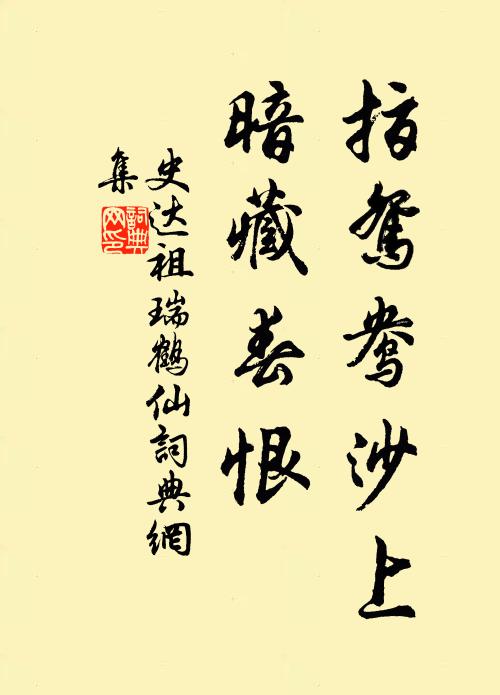 指鴛鴦沙上
暗藏春恨
史达祖瑞鶴仙詞典網
集
詞典网印